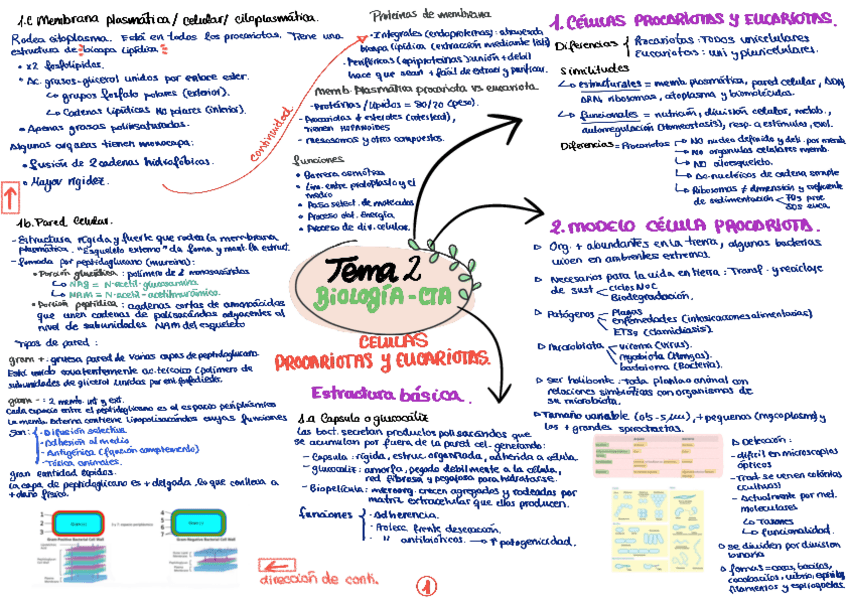 Tema 2
Biología - CTA
CÉLULAS
PROCARIOTAS Y EUCARIOTAS.
1. CÉLULAS PROCARIOTAS Y EUCARIOTAS.
Diferencias { Procariotas: Todos unicelulares
Eucariotas: uni y pluricelulares.
Similitudes
↳ estructurales = memb. plasmática, pared celular, ADN
ARN, ribosomas, citoplasma y biomoléculas.
↳ funcionales = nutrición, división celular, metab.,
autorregulación (homeostasis), resp. a estímulos, evol.
Diferencias - Procariotas → NO núcleo definido y deli. por memb.
↳ NO orgánulos celulares memb.
↳ NO citoesqueleto.
↳ Ac. nucleicos de cadena simple
↳ Ribosomas ≠ dimensión y coeficiente
de sedimentación < 70s proc
80s euca.
2. MODELO CÉLULA PROCARIOTA.
▷ Org. + abundantes en la tierra, algunas bacterias
viven en ambientes extremos.
▷ Necesarios para la vida en tierra: Transf. y reciclaje
de sust < ciclos N o C
Biodegradación.
▷ Patógenos < Plagas
enfermedades (intoxicaciones alimentarias)
ETSs (clamidiasis).
▷ Microbiota < viroma (virus).
micobiota (Hongos).
bacterioma (Bacteria).
▷ Ser holobionte: toda planta o animal con
relaciones simbióticas con organismos de
su microbiota.
▷ Tamaño variable (0,5-5 µm), + pequeños (mycoplasm) y
los + grandes spirochaetas.
▷ Detección:
- difícil en microscopios
ópticos
- Trad. se ven en colonias
(cultivos)
- Actualmente por met.
moleculares
↳ Taxones
↳ Funcionalidad.
▷ se dividen por división
binaria
▷ formas = cocos, bacilos,
cocobacilos, vibrio, espirilos,
filamentos y espiroquetas.
Estructura básica.
1.a Capsula o glucocáliz
Las bact. secretan productos polisacáridos que
se acumulan por fuera de la pared cel. generando:
- Cápsula: rígida, estruc. organizada, adherida a célula.
- glucocáliz: amorfa, pegada débilmente a la célula,
red fibrosa y pegajosa para hidratarse.
- Biopelícula: microorg. crecen agregados y rodeados por
matriz extracelular que ellos producen.
funciones { - Adherencia.
- Protecc. frente desecación.
- " antibióticos. → ↑ patogenicidad.
1b. Pared Celular.
- Estructura rígida y fuerte que rodea la membrana
plasmática. "Esqueleto externo" da forma y mant. la estruct.
- formada por peptidoglucano (mureína):
• Porción glucídica: polímero de 2 monosacáridos
↳ NAG = N-acetil-glucosamina
↳ NAM = N-acetil-murámico.
• Porción peptídica: cadenas cortas de aminoácidos
que unen cadenas de polisacáridos adyacentes al
nivel de subunidades NAM del esqueleto
Tipos de pared:
gram +: gruesa pared de varias capas de peptidoglucano
Está unido covalentemente ac. teicoico (polímero de
subunidades de glicerol unidas por enl. fosfodiester.
gram -: 2 memb. int y ext.
Cada espacio entre el peptidoglucano es el espacio periplásmico
La memb. externa contiene lipopolisacáridos cuyas funciones
son: - Difusión selectiva
- Adhesión al medio
- Antigénica (fijación complemento)
- Tóxica animales.
gran cantidad lípidos.
La capa de peptidoglucano es + delgada, lo que conlleva a
+ daño físico.
Gram-Positive Bacterial Cell Wall
Gram-Negative Bacterial Cell Wall
dirección de conti.
1
1.c Membrana plasmática / celular / citoplasmática.
Rodea citoplasma. Está en todos los procariotas. Tiene una
estructura de "bicapa lipídica"
• x2 fosfolípidos.
• Ac. grasos-glicerol unidos por enlace ester.
↳ grupos fosfato polares (exterior).
↳ Cadenas lipídicas no polares (interior).
• Apenas grasas poliinsaturadas.
Algunas arqueas tienen monocapa:
• fusión de 2 cadenas hidrofóbicas.
• Mayor rigidez.
continuidad
Proteínas de membrana
- Integrales (endoproteínas): atraviesa
bicapa lipídica (extracción mediante lisis)
- Periféricas (epiproteínas) unión + débil
hace que sean + fácil de extraer y purificar.
Memb. Plasmática procariota vs eucariota
- Proteínas / Lípidos = 80/20 (peso).
- Procariotas ≠ esteroles (colesterol),
tienen HOPANOIDES
- Mesosomas y otros compuestos.
funciones
• Barrera osmótica
• Lim. entre protoplasto y el
medio
• Paso select. de moléculas
• Proceso obt. energía
• Proceso de div. celular.